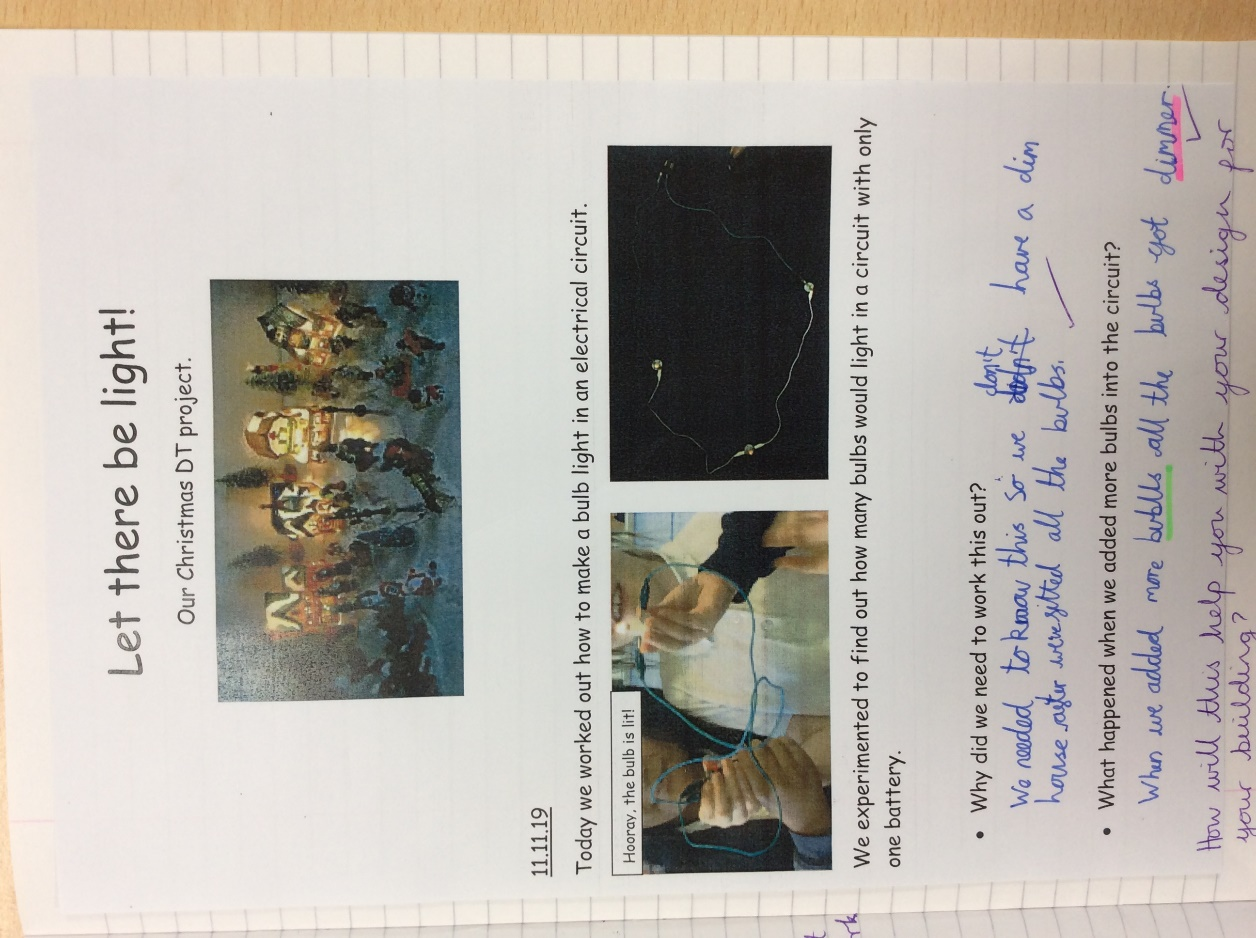 Let there be light!
Our Christmas DT project.
11.11.19
Today we worked out how to make a bulb light in an electrical circuit.
Hooray, the bulb is lit!
We experimented to find out how many bulbs would light in a circuit with only
one battery.
• Why did we need to work this out?
We needed to know this so we don't have a dim
house after we fitted all the bulbs.
• What happened when we added more bulbs into the circuit?
When we added more bublls all the bulbs got dimmer.
How will this help you with your design for
your building?
rk